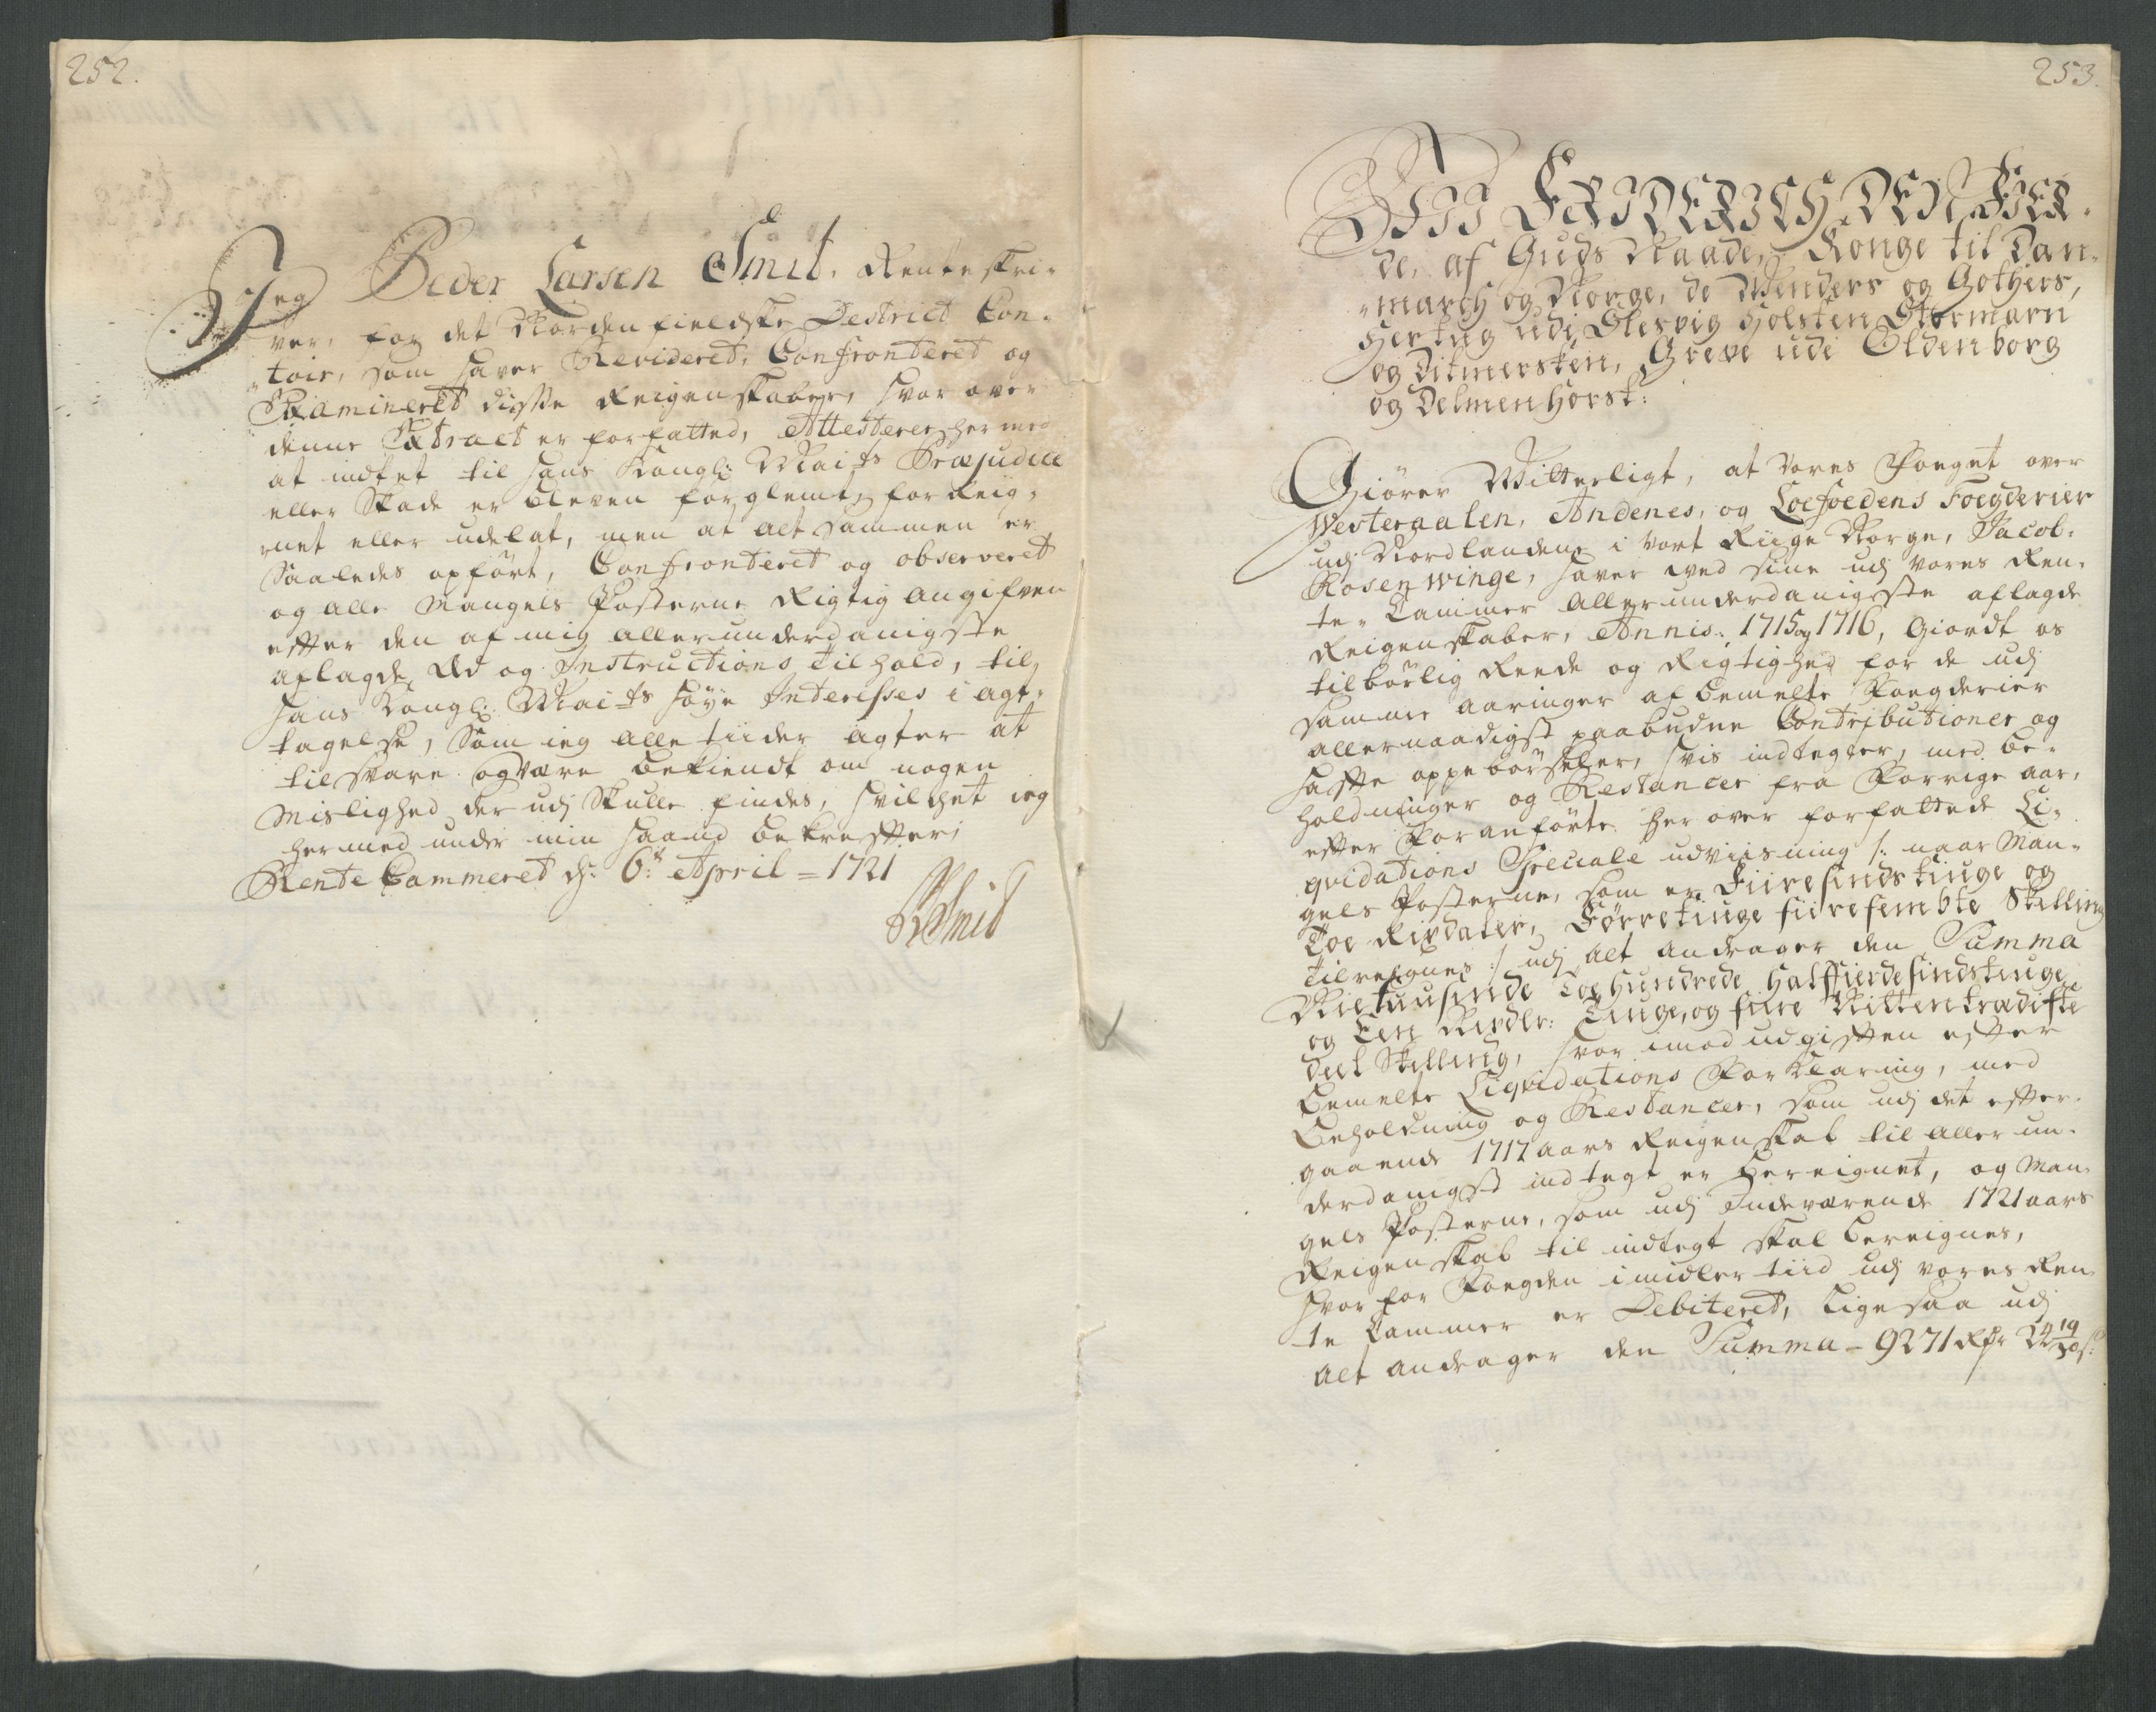 252.
Jeg Peder Larsen Smit, Renteskri-
ver, for det Nordenfieldske District Con-
"toir, som haver Revideret, Confronteret og
Examineret disse Reigenskaber, hvor over
denne Extract er forfatted, Attesterer her med
at indtet til hans Kongl: Mai:ts Præjudice
eller Skade er bleven forglemt, forReig-
net eller udelat, men at alt sammen er
Saaledes opført, Confronteret og observeret
og alle Mangels Posterne Rigtig angifven
efter den af mig allerunderdanigste
aflagde Eed og Instructions tilhold, til
hans Kongl: Mai:ts høye Interesses i agt-
tagelse, Som ieg alle tiider agter at
tilsvare og være bekiendt om nogen
Mislighed der udj Skulle findes, hvilchet ieg
hermed under min haand bekrefter,
RenteCammeret d: 6:t April = 1721
PLSmid
253.
WII FRIDERICH DEN FIER-
de, af Guds Naade, Konge til Dan-
"march og Norge, de Wenders og Gothers,
Hertug udi Slesvig Holsten Stormarn
og Ditmersken, Greve udi Oldenborg
og Delmenhorst:
Giører Witterligt, at Vores Foeget over
Westeraalen, Andenes, og Loefoedens Foegderier
udj Nordlandene i Vort Riige Norge, Jacob
Rosenwinge, haver ved sine udj Vores Ren-
te-Cammer Allerunderdanigste aflagde
Reigenskaber, Annis: 1715 og 1716, Giordt os
tilbørlig Reede og Rigtighed for de udj
samme aaringer af bemelte Foegderier
allernaadigst paabudne Contributioner og
hafte oppebørseler, hvis indtegter, med be-
holdninger og Restancer fra Forrige aar,
efter Foranførte her over forfattede Li-
qvidations Speciale udviisning /: naar Man-
gels Posterne, som er Fiiresindstiuge og
Toe Rixdaler,Førretiuge fiirefembte Skilling
tilreignes :/ udj alt andrager den Summa
Nietuusinde Toehundrede Halffierdesindstiuge
og Een Rixdlr: Tiuge, og fiire Nitten tredifte
deel Skilling, hvor imod udgiften efter
bemelte Liqvidations Forklaring, med
Beholdning og Restancer, som udj det efter-
gaaende 1717 aars Reigenskab til allerun-
derdanigst indtegt er bereignet, og Man-
gels Posterne, som udj Indeværende 1721 aars
Reigenskab til indtegt skal bereignes,
hvor for Foegden imidlertiid udj vores Ren-
te Cammer er Debiteret, Ligesaa udj
alt andrager den Summa - 9271 Rdr 24 19/30 s: